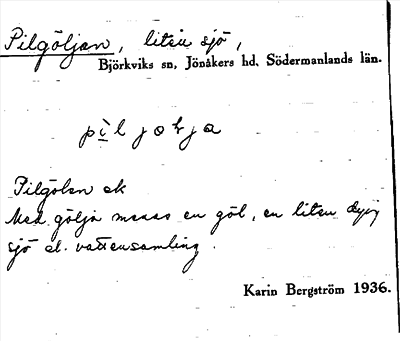 Pilgöljan, liten sjö,
Björkviks sn, Jönåkers hd, Södermanlands län.
Pilgölen ek
Med gölja menas en göl, en liten dyig
sjö el. vattensamling.
Karin Bergström 1936.